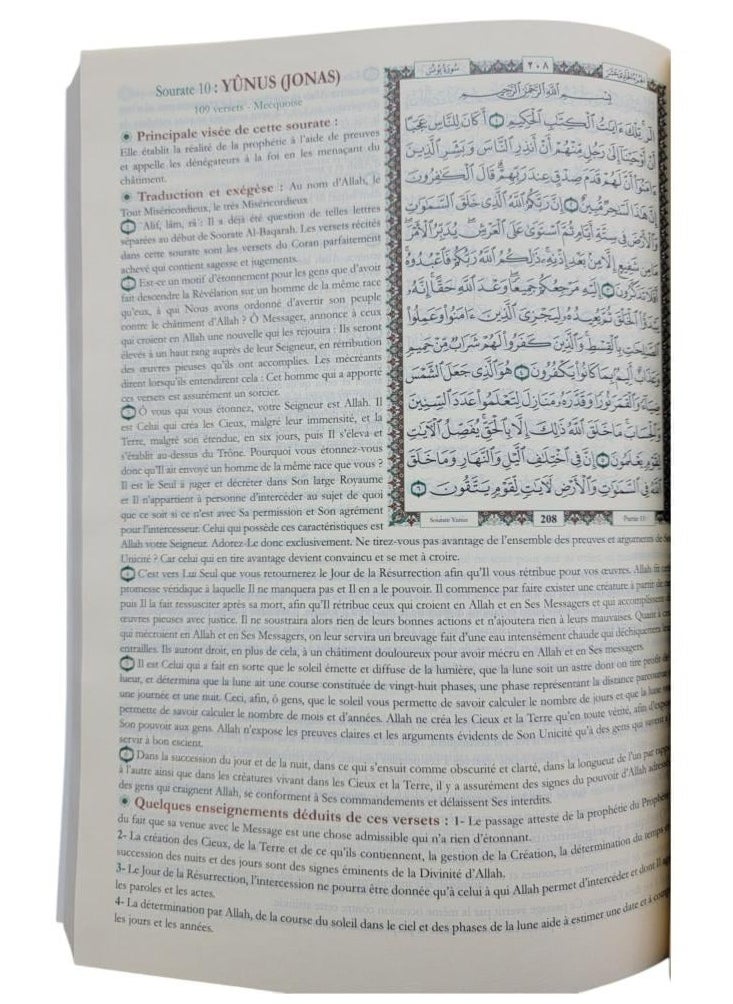 Sourate 10 : YÛNUS (JONAS)
109 versets - Mecquoise
Principale visée de cette sourate :
Elle établit la réalité de la prophétie à l'aide de preuves
et appelle les dénégateurs à la foi en les menaçant du
châtiment.
Traduction et exégèse : Au nom d'Allah, le
Tout Miséricordieux, le très Miséricordieux
1 'Alif, lâm, râ' : Il a déjà été question de telles lettres
séparées au début de Sourate Al-Baqarah. Les versets récités
dans cette sourate sont les versets du Coran parfaitement
achevé qui contient sagesse et jugements.
2 Est-ce un motif d'étonnement pour les gens que d'avoir
fait descendre la Révélation sur un homme de la même race
qu'eux, à qui Nous avons ordonné d'avertir son peuple
contre le châtiment d'Allah ? Ô Messager, annonce à ceux
qui croient en Allah une nouvelle qui les réjouira : Ils seront
élevés à un haut rang auprès de leur Seigneur, en rétribution
des œuvres pieuses qu'ils ont accomplies. Les mécréants
dirent lorsqu'ils entendirent cela : Cet homme qui a apporté
ces versets est assurément un sorcier.
3 Ô vous qui vous étonnez, votre Seigneur est Allah. Il
est Celui qui créa les Cieux, malgré leur immensité, et la
Terre, malgré son étendue, en six jours, puis Il s'éleva et
s'établit au-dessus du Trône. Pourquoi vous étonnez-vous
donc qu'Il ait envoyé un homme de la même race que vous ?
Il est le Seul à juger et décréter dans Son large Royaume
et Il n'appartient à personne d'intercéder au sujet de quoi
que ce soit si ce n'est avec Sa permission et Son agrément
pour l'intercesseur. Celui qui possède ces caractéristiques est
سورة يونس
٢٠٨
الجزء الحادي عشر
بسم الله الرحمن الرحيم
الٓر تِلۡكَ ءَايَٰتُ ٱلۡكِتَٰبِ ٱلۡحَكِيمِ ١ أَكَانَ لِلنَّاسِ عَجَبًا
أَنۡ أَوۡحَيۡنَآ إِلَىٰ رَجُلٖ مِّنۡهُمۡ أَنۡ أَنذِرِ ٱلنَّاسَ وَبَشِّرِ ٱلَّذِينَ
ءَامَنُوٓاْ أَنَّ لَهُمۡ قَدَمَ صِدۡقٍ عِندَ رَبِّهِمۡۗ قَالَ ٱلۡكَٰفِرُونَ
إِنَّ هَٰذَا لَسَٰحِرٞ مُّبِينٌ ٢ إِنَّ رَبَّكُمُ ٱللَّهُ ٱلَّذِي خَلَقَ ٱلسَّمَٰوَٰتِ
وَٱلۡأَرۡضَ فِي سِتَّةِ أَيَّامٖ ثُمَّ ٱسۡتَوَىٰ عَلَى ٱلۡعَرۡشِۖ يُدَبِّرُ ٱلۡأَمۡرَۖ
مَا مِن شَفِيعٍ إِلَّا مِنۢ بَعۡدِ إِذۡنِهِۦۚ ذَٰلِكُمُ ٱللَّهُ رَبُّكُمۡ فَٱعۡبُدُوهُۚ
أَفَلَا تَذَكَّرُونَ ٣ إِلَيۡهِ مَرۡجِعُكُمۡ جَمِيعٗاۖ وَعۡدَ ٱللَّهِ حَقًّاۚ إِنَّهُۥ
يَبۡدَؤُاْ ٱلۡخَلۡقَ ثُمَّ يُعِيدُهُۥ لِيَجۡزِيَ ٱلَّذِينَ ءَامَنُواْ وَعَمِلُواْ
ٱلصَّٰلِحَٰتِ بِٱلۡقِسۡطِۚ وَٱلَّذِينَ كَفَرُواْ لَهُمۡ شَرَابٞ مِّنۡ حَمِيمٖ
وَعَذَابٌ أَلِيمُۢ بِمَا كَانُواْ يَكۡفُرُونَ ٤ هُوَ ٱلَّذِي جَعَلَ ٱلشَّمۡسَ
ضِيَآءٗ وَٱلۡقَمَرَ نُورٗا وَقَدَّرَهُۥ مَنَازِلَ لِتَعۡلَمُواْ عَدَدَ ٱلسِّنِينَ
وَٱلۡحِسَابَۚ مَا خَلَقَ ٱللَّهُ ذَٰلِكَ إِلَّا بِٱلۡحَقِّۚ يُفَصِّلُ ٱلۡأٓيَٰتِ
لِقَوۡمٖ يَعۡلَمُونَ ٥ إِنَّ فِي ٱخۡتِلَٰفِ ٱلَّيۡلِ وَٱلنَّهَارِ وَمَا خَلَقَ
ٱللَّهُ فِي ٱلسَّمَٰوَٰتِ وَٱلۡأَرۡضِ لَأٓيَٰتٖ لِّقَوۡمٖ يَتَّقُونَ ٦
Sourate Yunus
208
Partie 11
Allah votre Seigneur. Adorez-Le donc exclusivement. Ne tirez-vous pas avantage de l'ensemble des preuves et arguments de Son
Unicité ? Car celui qui en tire avantage devient convaincu et se met à croire.
4 C'est vers Lui Seul que vous retournerez le Jour de la Résurrection afin qu'Il vous rétribue pour vos œuvres. Allah fit cette
promesse véridique à laquelle Il ne manquera pas et Il en a le pouvoir. Il commence par faire exister une créature à partir de
puis Il la fait ressusciter après sa mort, afin qu'Il rétribue ceux qui croient en Allah et en Ses Messagers et qui accomplissent
œuvres pieuses avec justice. Il ne soustraira alors rien de leurs bonnes actions et n'ajoutera rien à leurs mauvaises. Quant à
qui mécroient en Allah et en Ses Messagers, on leur servira un breuvage fait d'une eau intensément chaude qui déchiquètera
entrailles. Ils auront droit, en plus de cela, à un châtiment douloureux pour avoir mécru en Allah et en Ses messagers.
5 Il est Celui qui a fait en sorte que le soleil émette et diffuse de la lumière, que la lune soit un astre dont on tire profit de
lueur, et détermina que la lune ait une course constituée de vingt-huit phases, une phase représentant la distance parcourue
une journée et une nuit. Ceci, afin, ô gens, que le soleil vous permette de savoir calculer le nombre de jours et que la lune vous
permette de savoir calculer le nombre de mois et d'années. Allah ne créa les Cieux et la Terre qu'en toute vérité, afin d'exposer
Son pouvoir aux gens. Allah n'expose les preuves claires et les arguments évidents de Son Unicité qu'à des gens qui savent s'en
servir à bon escient.
6 Dans la succession du jour et de la nuit, dans ce qui s'ensuit comme obscurité et clarté, dans la longueur de l'un par rapport
à l'autre ainsi que dans les créatures vivant dans les Cieux et la Terre, il y a assurément des signes du pouvoir d'Allah adressés
des gens qui craignent Allah, se conforment à Ses commandements et délaissent Ses interdits.
Quelques enseignements déduits de ces versets : 1- Le passage atteste de la prophétie du Prophète
du fait que sa venue avec le Message est une chose admissible qui n'a rien d'étonnant.
2- La création des Cieux, de la Terre et de ce qu'ils contiennent, la gestion de la Création, la détermination du temps et
succession des nuits et des jours sont des signes éminents de la Divinité d'Allah.
3- Le Jour de la Résurrection, l'intercession ne pourra être donnée qu'à celui à qui Allah permet d'intercéder et dont Il
les paroles et les actes.
4- La détermination par Allah, de la course du soleil dans le ciel et des phases de la lune aide à estimer une date et à
les jours et les années.